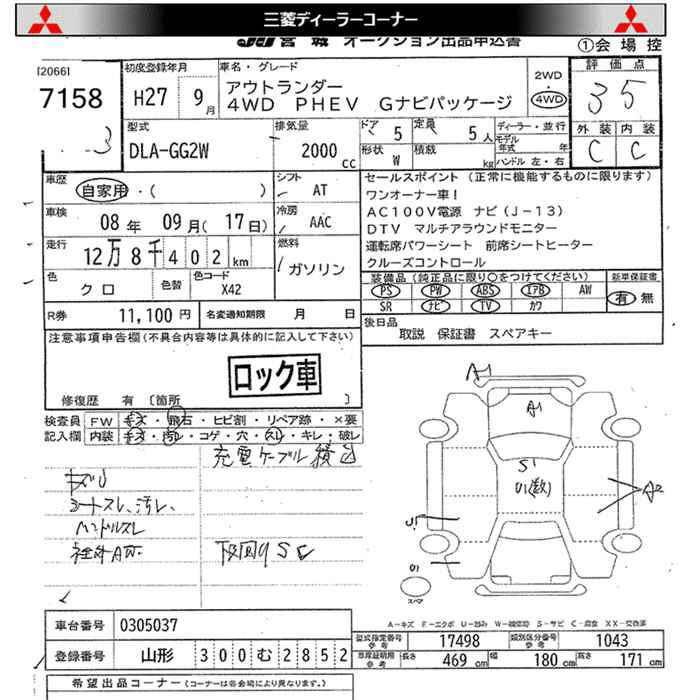 三菱ディーラーコーナー
JU 宮城 オークション出品申込書
①会場控
[2066]
7158
3
初度登録年月
H27 9月
車名・グレード
アウトランダー
4WD PHEV Gナビパッケージ
2WD
・
4WD
評価点
3 5
外装 内装
C C
型式
DLA-GG2W
排気量
2000 cc
ドア 5
定員 5人
形状 W
積載 kg
ディーラー・並行
モデル年式 年
ハンドル 左・右
車歴
自家用・( )
シフト
AT
車検
08年 09月(17日)
冷房
AAC
走行
12万8千402km
燃料
ガソリン
色
クロ
色替
色コード
X42
セールスポイント (正常に機能するものに限ります)
ワンオーナー車!
AC100V電源 ナビ(J-13)
DTV マルチアラウンドモニター
運転席パワーシート 前席シートヒーター
クルーズコントロール
装備品(純正品に限り○をつけてください)
新車保証書
PS PW ABS エアB AW
SR ナビ TV カワ
有 無
R券
11,100円
名変通知期限 月 日
後日品
取説 保証書 スペアキー
注意事項申告欄(不具合内容等は具体的に記入して下さい)
ロック車
修復歴 有 [箇所 ]
検査員記入欄
FW キズ・飛石・ヒビ割・リペア跡・×要
内装 キズ・汚れ・コゲ・穴・スレ・キレ・破レ
充電ケーブル積込
シートスレ、汚レ、
ハンドルスレ
下回りSC
A1
A1
S1
U1(数)
A2
U1
スペア
A-キズ E-エクボ U-凹み W-補修跡 S-サビ C-腐食 XX-交換済
車台番号
0305037
登録番号
山形 300む2852
型式指定番号 参考 17498
類別区分番号 参考 1043
車庫証明用 参考 長さ 469cm 幅 180cm 高さ 171cm
希望出品コーナー (コーナーは各会場により異なります。)